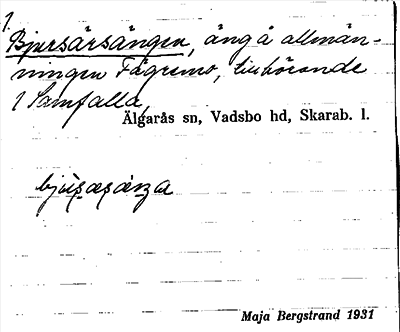 1.
Bjursårsängen, äng å allmän-
ningen Fägremo, tillhörande
1 Samfalla,
Älgarås sn, Vadsbo hd, Skarab. l.
Maja Bergstrand 1931